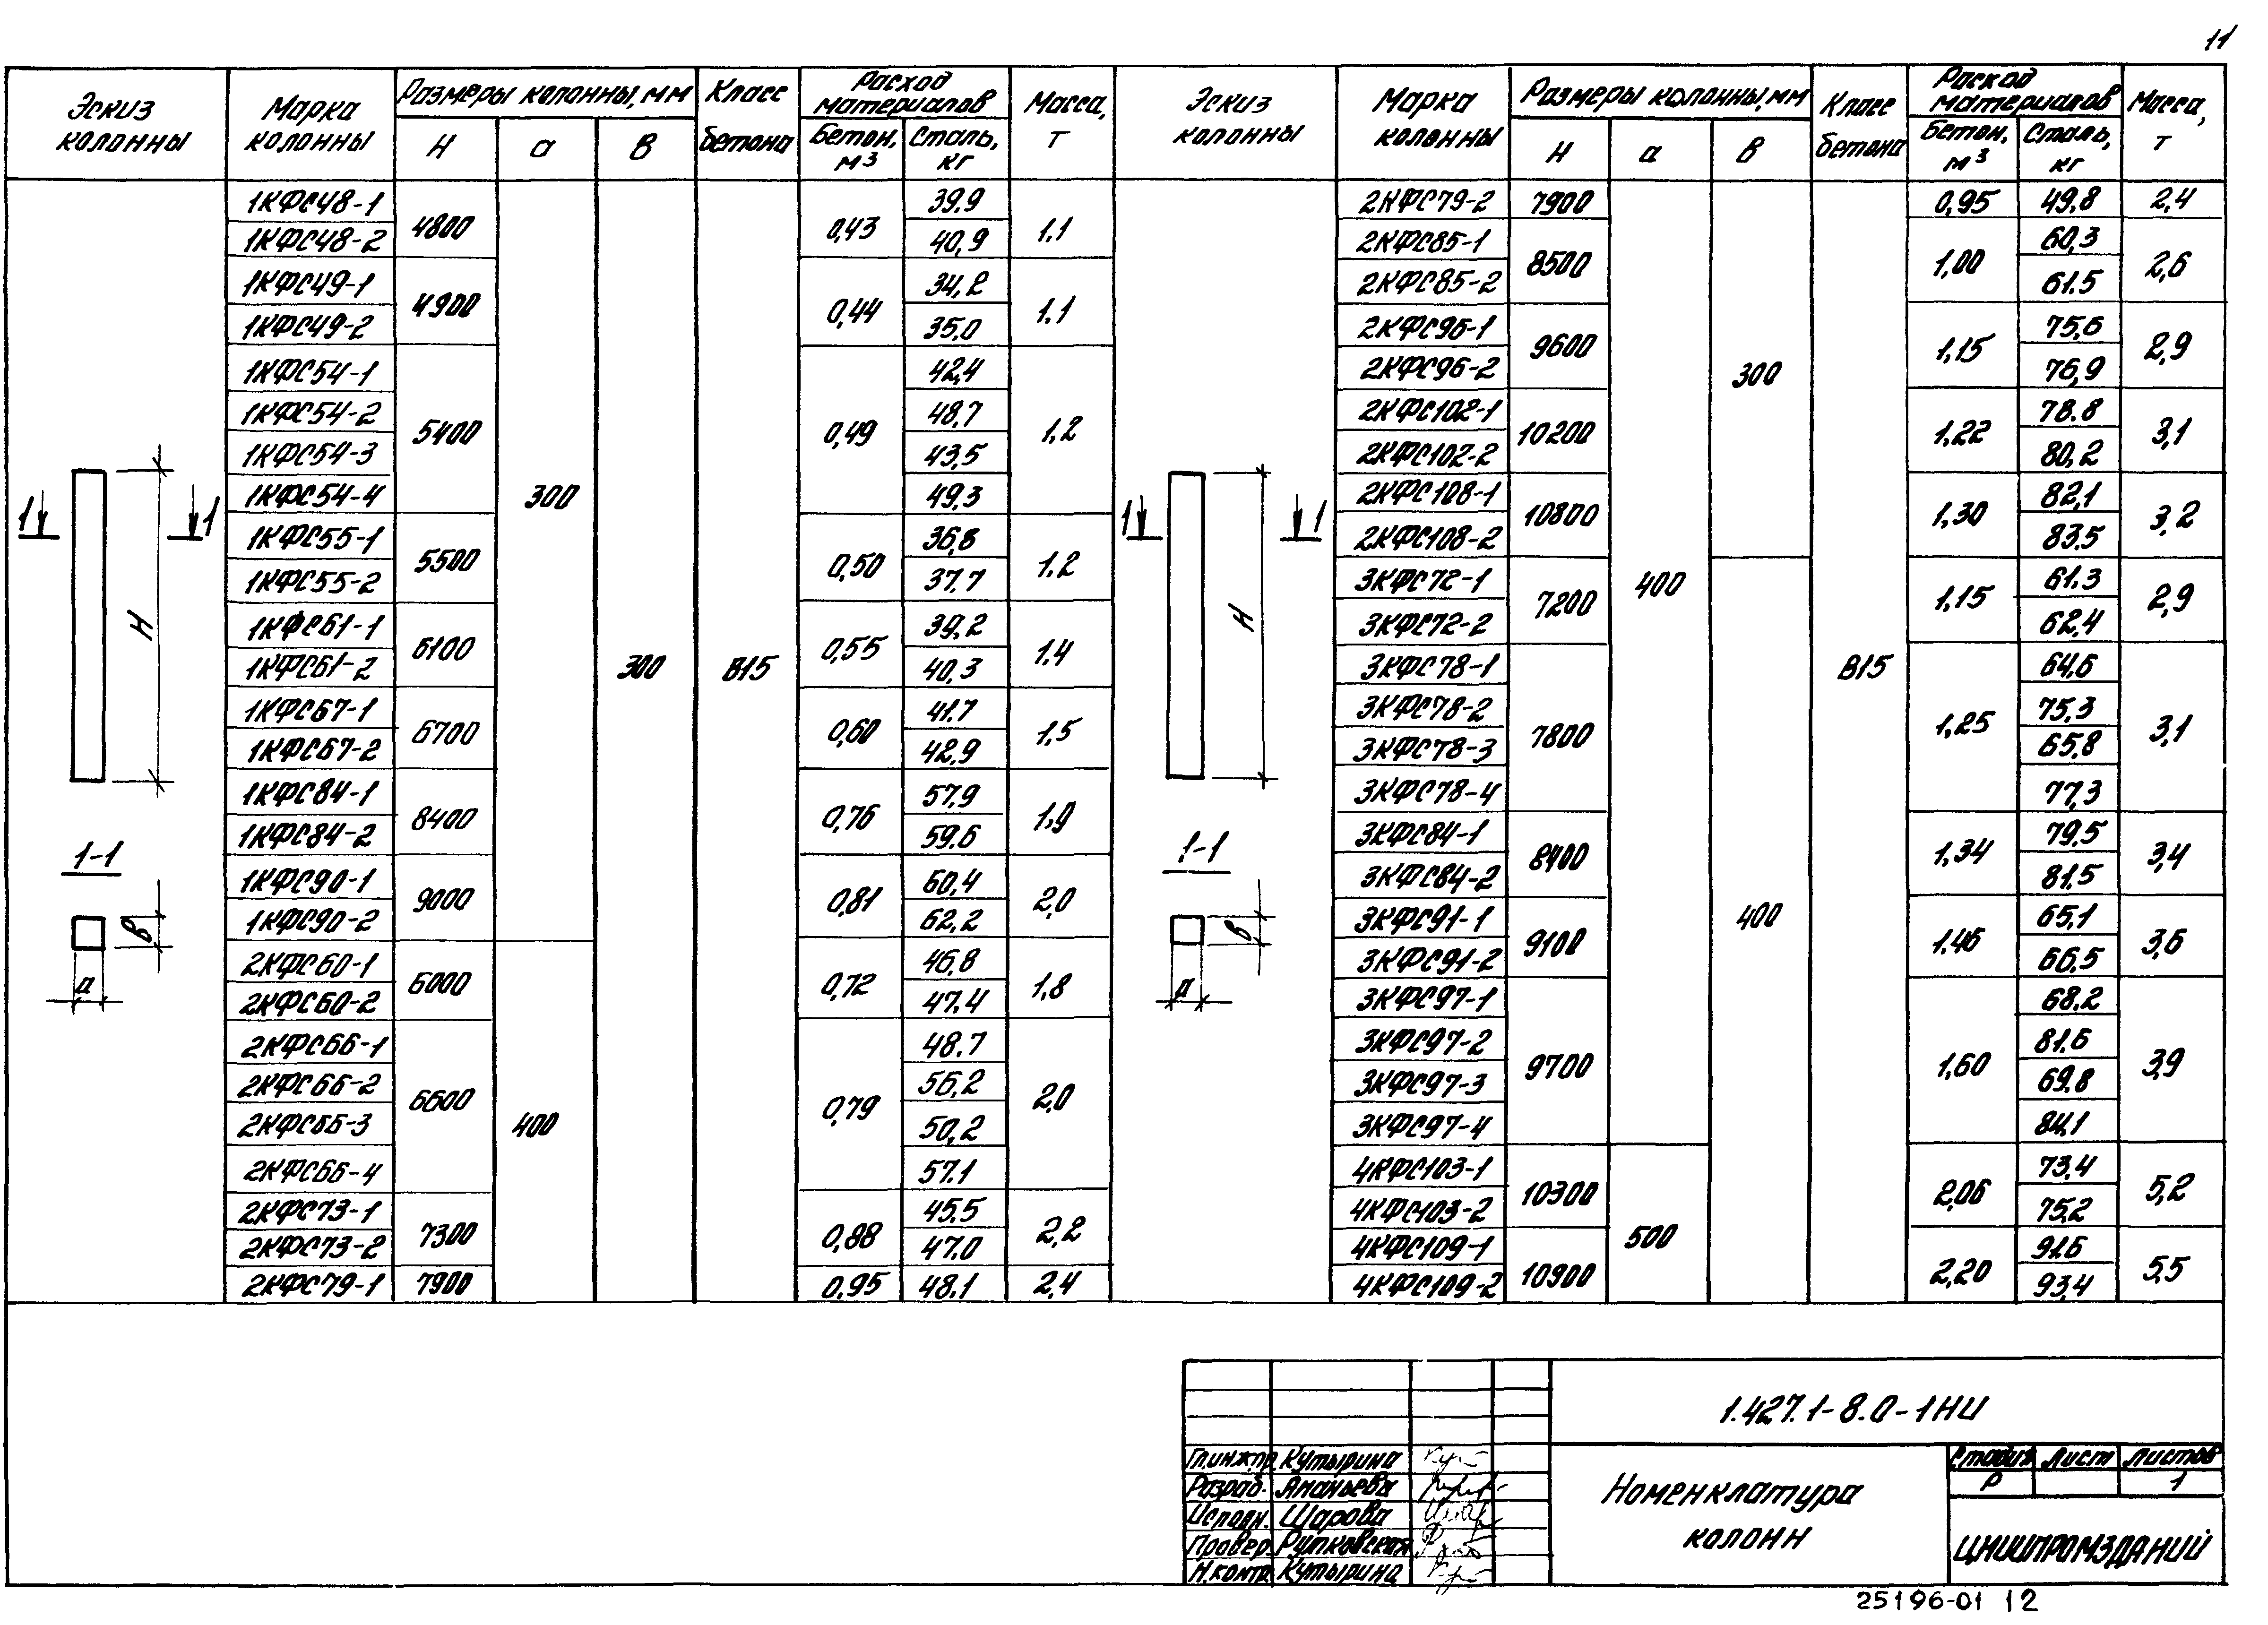 11
Эскиз колонны | Марка колонны | Размеры колонны, мм | Класс бетона | Расход материалов | Масса, т | Эскиз колонны | Марка колонны | Размеры колонны, мм | Класс бетона | Расход материалов | Масса, т
Н | а | в | Бетон, м³ | Сталь, кг | Н | а | в | Бетон, м³ | Сталь, кг
1КФС48-1 | 4800 | 300 | 300 | В15 | 0,43 | 39.9 | 1.1
1КФС48-2 | 40,9
1КФС49-1 | 4900 | 0,44 | 34,2 | 1.1
1КФС49-2 | 35,0
1КФС54-1 | 5400 | 0,49 | 42,4 | 1,2
1КФС54-2 | 48,7
1КФС54-3 | 43,5
1КФС54-4 | 49,3
1КФС55-1 | 5500 | 0,50 | 36,8 | 1.2
1КФС55-2 | 37,7
1КФС61-1 | 6100 | 0,55 | 39,2 | 1.4
1КФС61-2 | 40,3
1КФС67-1 | 6700 | 0,60 | 41.7 | 1,5
1КФС67-2 | 42,9
1КФС84-1 | 8400 | 0,76 | 57,9 | 1,9
1КФС84-2 | 59,6
1КФС90-1 | 9000 | 0,81 | 60,4 | 2,0
1КФС90-2 | 62,2
2КФС60-1 | 6000 | 400 | 0,72 | 46,8 | 1,8
2КФС60-2 | 47,4
2КФС66-1 | 6600 | 0,79 | 48.7 | 2,0
2КФС66-2 | 56,2
2КФС66-3 | 50,2
2КФС66-4 | 57.1
2КФС73-1 | 7300 | 0,88 | 45.5 | 2,2
2КФС73-2 | 47.0
2КФС79-1 | 7900 | 0.95 | 48.1 | 2,4
1 1
Н
1-1
в
а
2КФС79-2 | 7900 | 400 | 300 | В15 | 0,95 | 49,8 | 2,4
2КФС85-1 | 8500 | 1,00 | 60,3 | 2,6
2КФС85-2 | 61.5
2КФС96-1 | 9600 | 1,15 | 75,6 | 2,9
2КФС96-2 | 76,9
2КФС102-1 | 10200 | 1,22 | 78.8 | 3,1
2КФС102-2 | 80,2
2КФС108-1 | 10800 | 1,30 | 82,1 | 3,2
2КФС108-2 | 83,5
3КФС72-1 | 7200 | 400 | 1,15 | 61.3 | 2,9
3КФС72-2 | 62,4
3КФС78-1 | 7800 | 1,25 | 64,6 | 3,1
3КФС78-2 | 75,3
3КФС78-3 | 65,8
3КФС78-4 | 77,3
3КФС84-1 | 8400 | 1,34 | 79,5 | 3,4
3КФС84-2 | 81,5
3КФС91-1 | 9100 | 1.46 | 65,1 | 3,6
3КФС91-2 | 66,5
3КФС97-1 | 9700 | 1,60 | 68.2 | 3,9
3КФС97-2 | 81.6
3КФС97-3 | 69.8
3КФС97-4 | 84,1
4КФС103-1 | 10300 | 500 | 2,06 | 73,4 | 5,2
4КФС103-2 | 75,2
4КФС109-1 | 10900 | 2,20 | 91.6 | 5,5
4КФС109-2 | 93,4
1 1
Н
1-1
в
а
1.427.1-8.0-1НИ
Гл.инж.пр. Кутырина
Разраб. Ананьева
Исполн. Щарова
Провер. Рутковская
Н.контр. Кутырина
Номенклатура
колонн
Стадия | Лист | Листов
Р | 1
ЦНИИПРОМЗДАНИЙ
25196-01 12